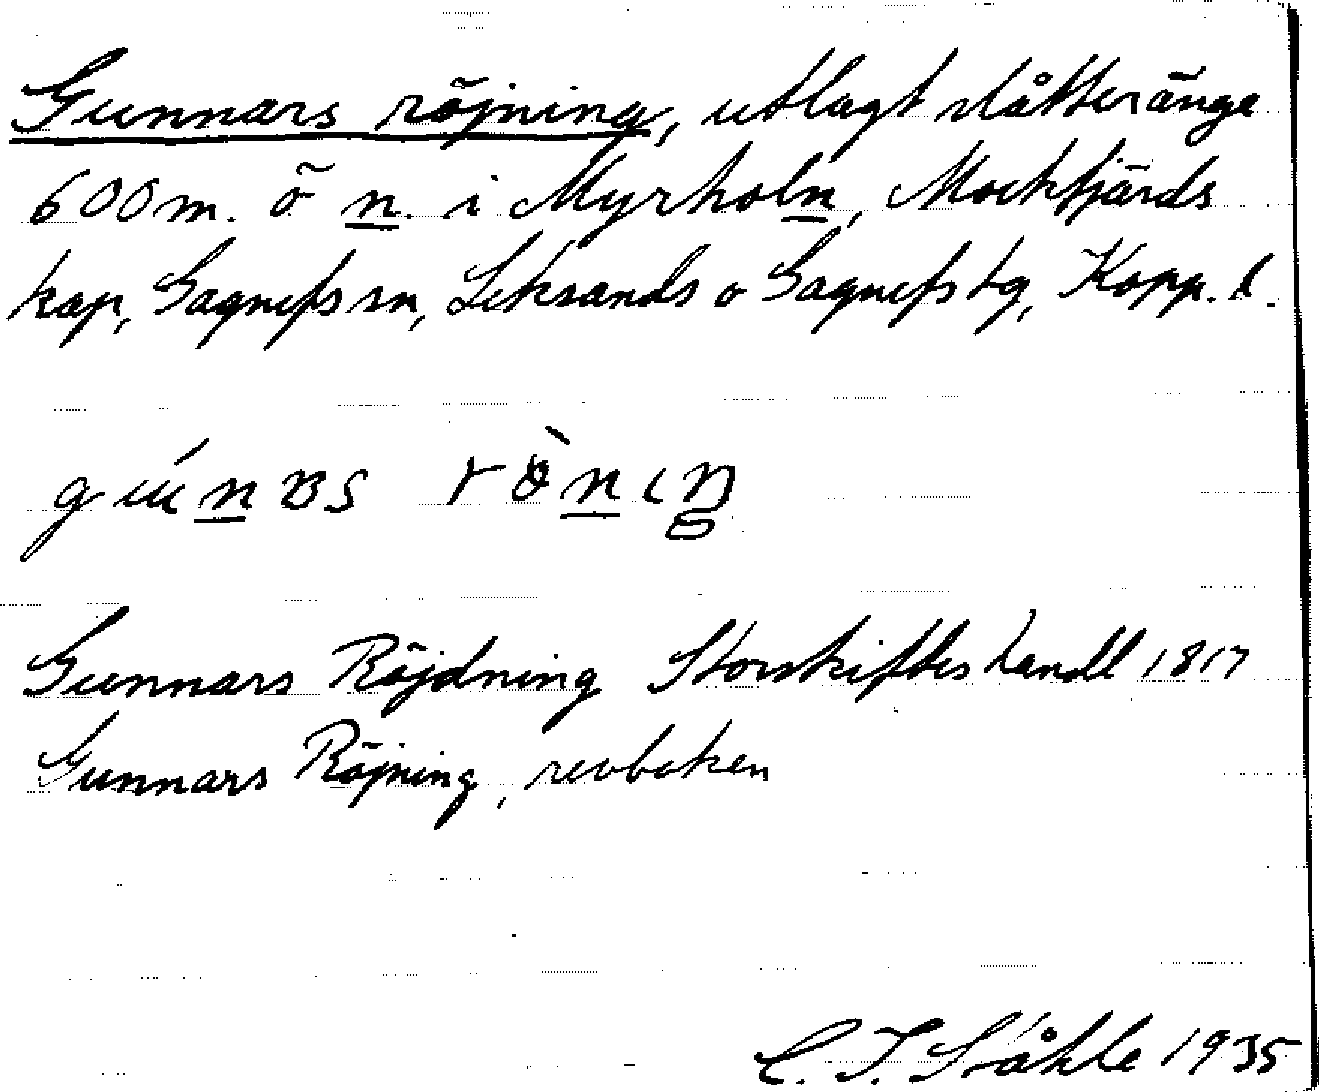 Gunnars röjning, utlagt slåtteränge
600 m. ö n. i Myrholn, Mockfjärds
kap, Gagnefs sn, Leksands o Gagnefs tg, Kopp. l.
Gunnars Röjdning Storskifteshandl 1817
Gunnars Röjning, revboken
C. I. Ståhle 1935